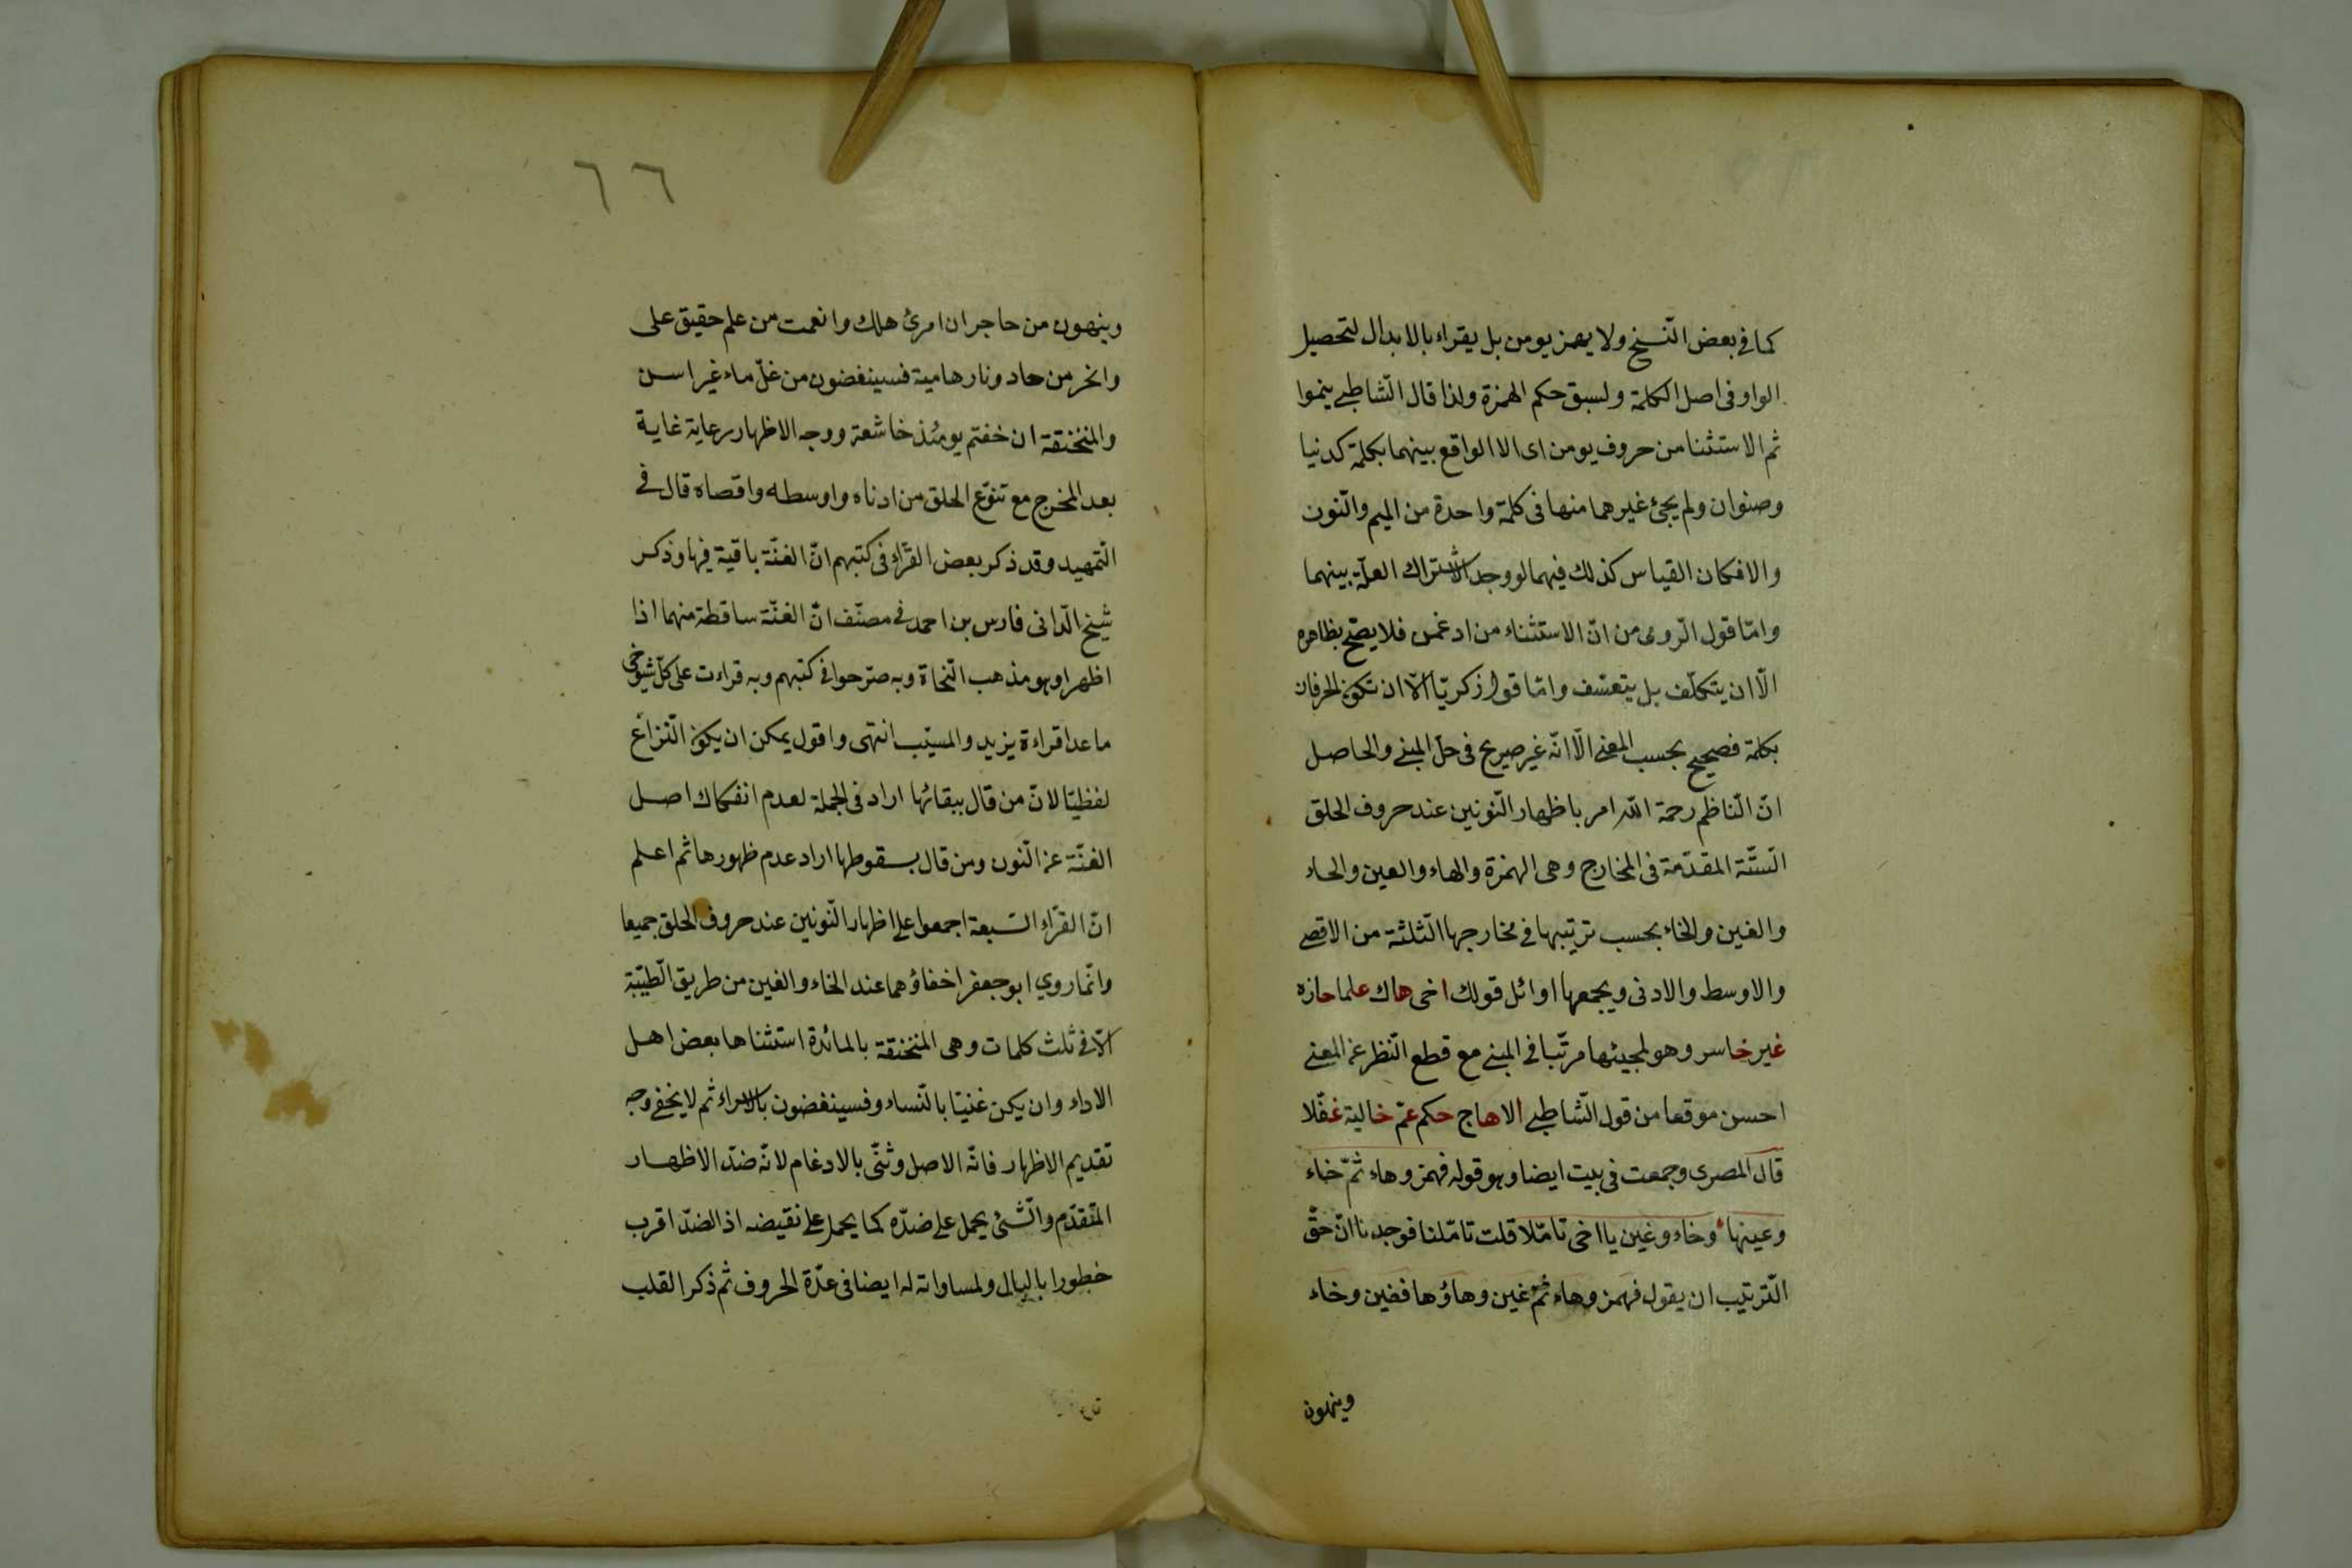 كما في بعض النّسخ ولا يهمز يومن بل يقراء بالابدال لتحصيل
الواو في اصل الكلمة ولسبق حكم الهمزة ولذا قال الشّاطبي ينموا
ثم الاستثنا من حروف يومن اى الا الواقع بينهما بكلمة كدنيا
وصنوان ولم يجئ غيرهما منها في كلمة واحدة من الميم والنّون
والا فكان القياس كذلك فيهما لو وجد لاشتراك العلّة بينهما
وامّا قول الرّومى من انّ الاستثناء من ادغمن فلا يصحّ بظاهره
الّا ان يتكلّف بل يتعسّف وامّا قول زكريّا الّا ان تكون الحرفان
بكلمة فصحيح بحسب المعنى الّا انّه غير صريح في حلّ المبنى والحاصل
انّ النّاظم رحمة الله امر باظهار النّونين عند حروف الحلق
السّتّة المقدّمة في المخارج وهى الهمزة والهاء والعين والحاء
والغين والخاء بحسب ترتيبها في مخارجها الثّلثة من الاقصى
والاوسط والادنى ويجمعها اوائل قولك اخى هاك علما حازه
غير خاسر وهو لمجيئها مرتّبا في المبنى مع قطع النّظر عن المعنى
احسن موقعا من قول الشّاطبي الا هاج حكم عمّ خالية غفّلا
قال المصرى وجمعت في بيت ايضا وهو قوله فهمز وهاء ثمّ خاء
وعينها وخاء وغين يا اخى تامّلا قلت تامّلنا فوجدنا انّ حقّ
التّرتيب ان يقول فهمز وهاء ثمّ غين وهاؤها فغين وخاء
وينهون
٦٦
وينهون من حاجر ان امرئ هلك وانعمت من علم حقيق على
وانحر من حاد ونار هامية فسينغضون من غلّ ماء غير اسن
والمنخنقة ان خفتم يومئذ خاشعة ووجه الاظهار رعاية غاية
بعد المخرج مع تنوّع الحلق من ادناه واوسطه واقصاه قال في
التّمهيد وقد ذكر بعض القرّاء في كتبهم انّ الغنّة باقية فيها وذكر
شيخ الدّانى فارس بن احمد في مصنّف انّ الغنّة ساقطة منهما اذا
اظهرا وهو مذهب النّحاة وبه صرّحوا في كتبهم وبه قراءت على كلّ شيوخى
ما عدا قراءة يزيد والمسيّب انتهى واقول يمكن ان يكون النّزاع
لفظيّا لانّ من قال ببقائها اراد في الجملة لعدم انفكاك اصل
الغنّة عن النّون ومن قال بسقوطها اراد عدم ظهورها ثم اعلم
انّ القرّاء السّبعة اجمعوا على اظهار النّونين عند حروف الحلق جميعا
وانّما روي ابو جعفر اخفاؤهما عند الخاء والغين من طريق الطّيّبة
الّا في ثلث كلمات وهى المنخنقة بالمائدة استثناها بعض اهل
الاداء وان يكن غنيّا بالنّساء وفسينغضون بالاسراء ثم لا يخفى وجه
تقديم الاظهار فانّه الاصل وثنّى بالادغام لانّه ضدّ الاظهار
المتقدّم والشّئ يحمل على ضدّه كما يحمل على نقيضه اذ الضدّ اقرب
خطورا بالبال ولمساواته له ايضا في عدّة الحروف ثم ذكر القلب